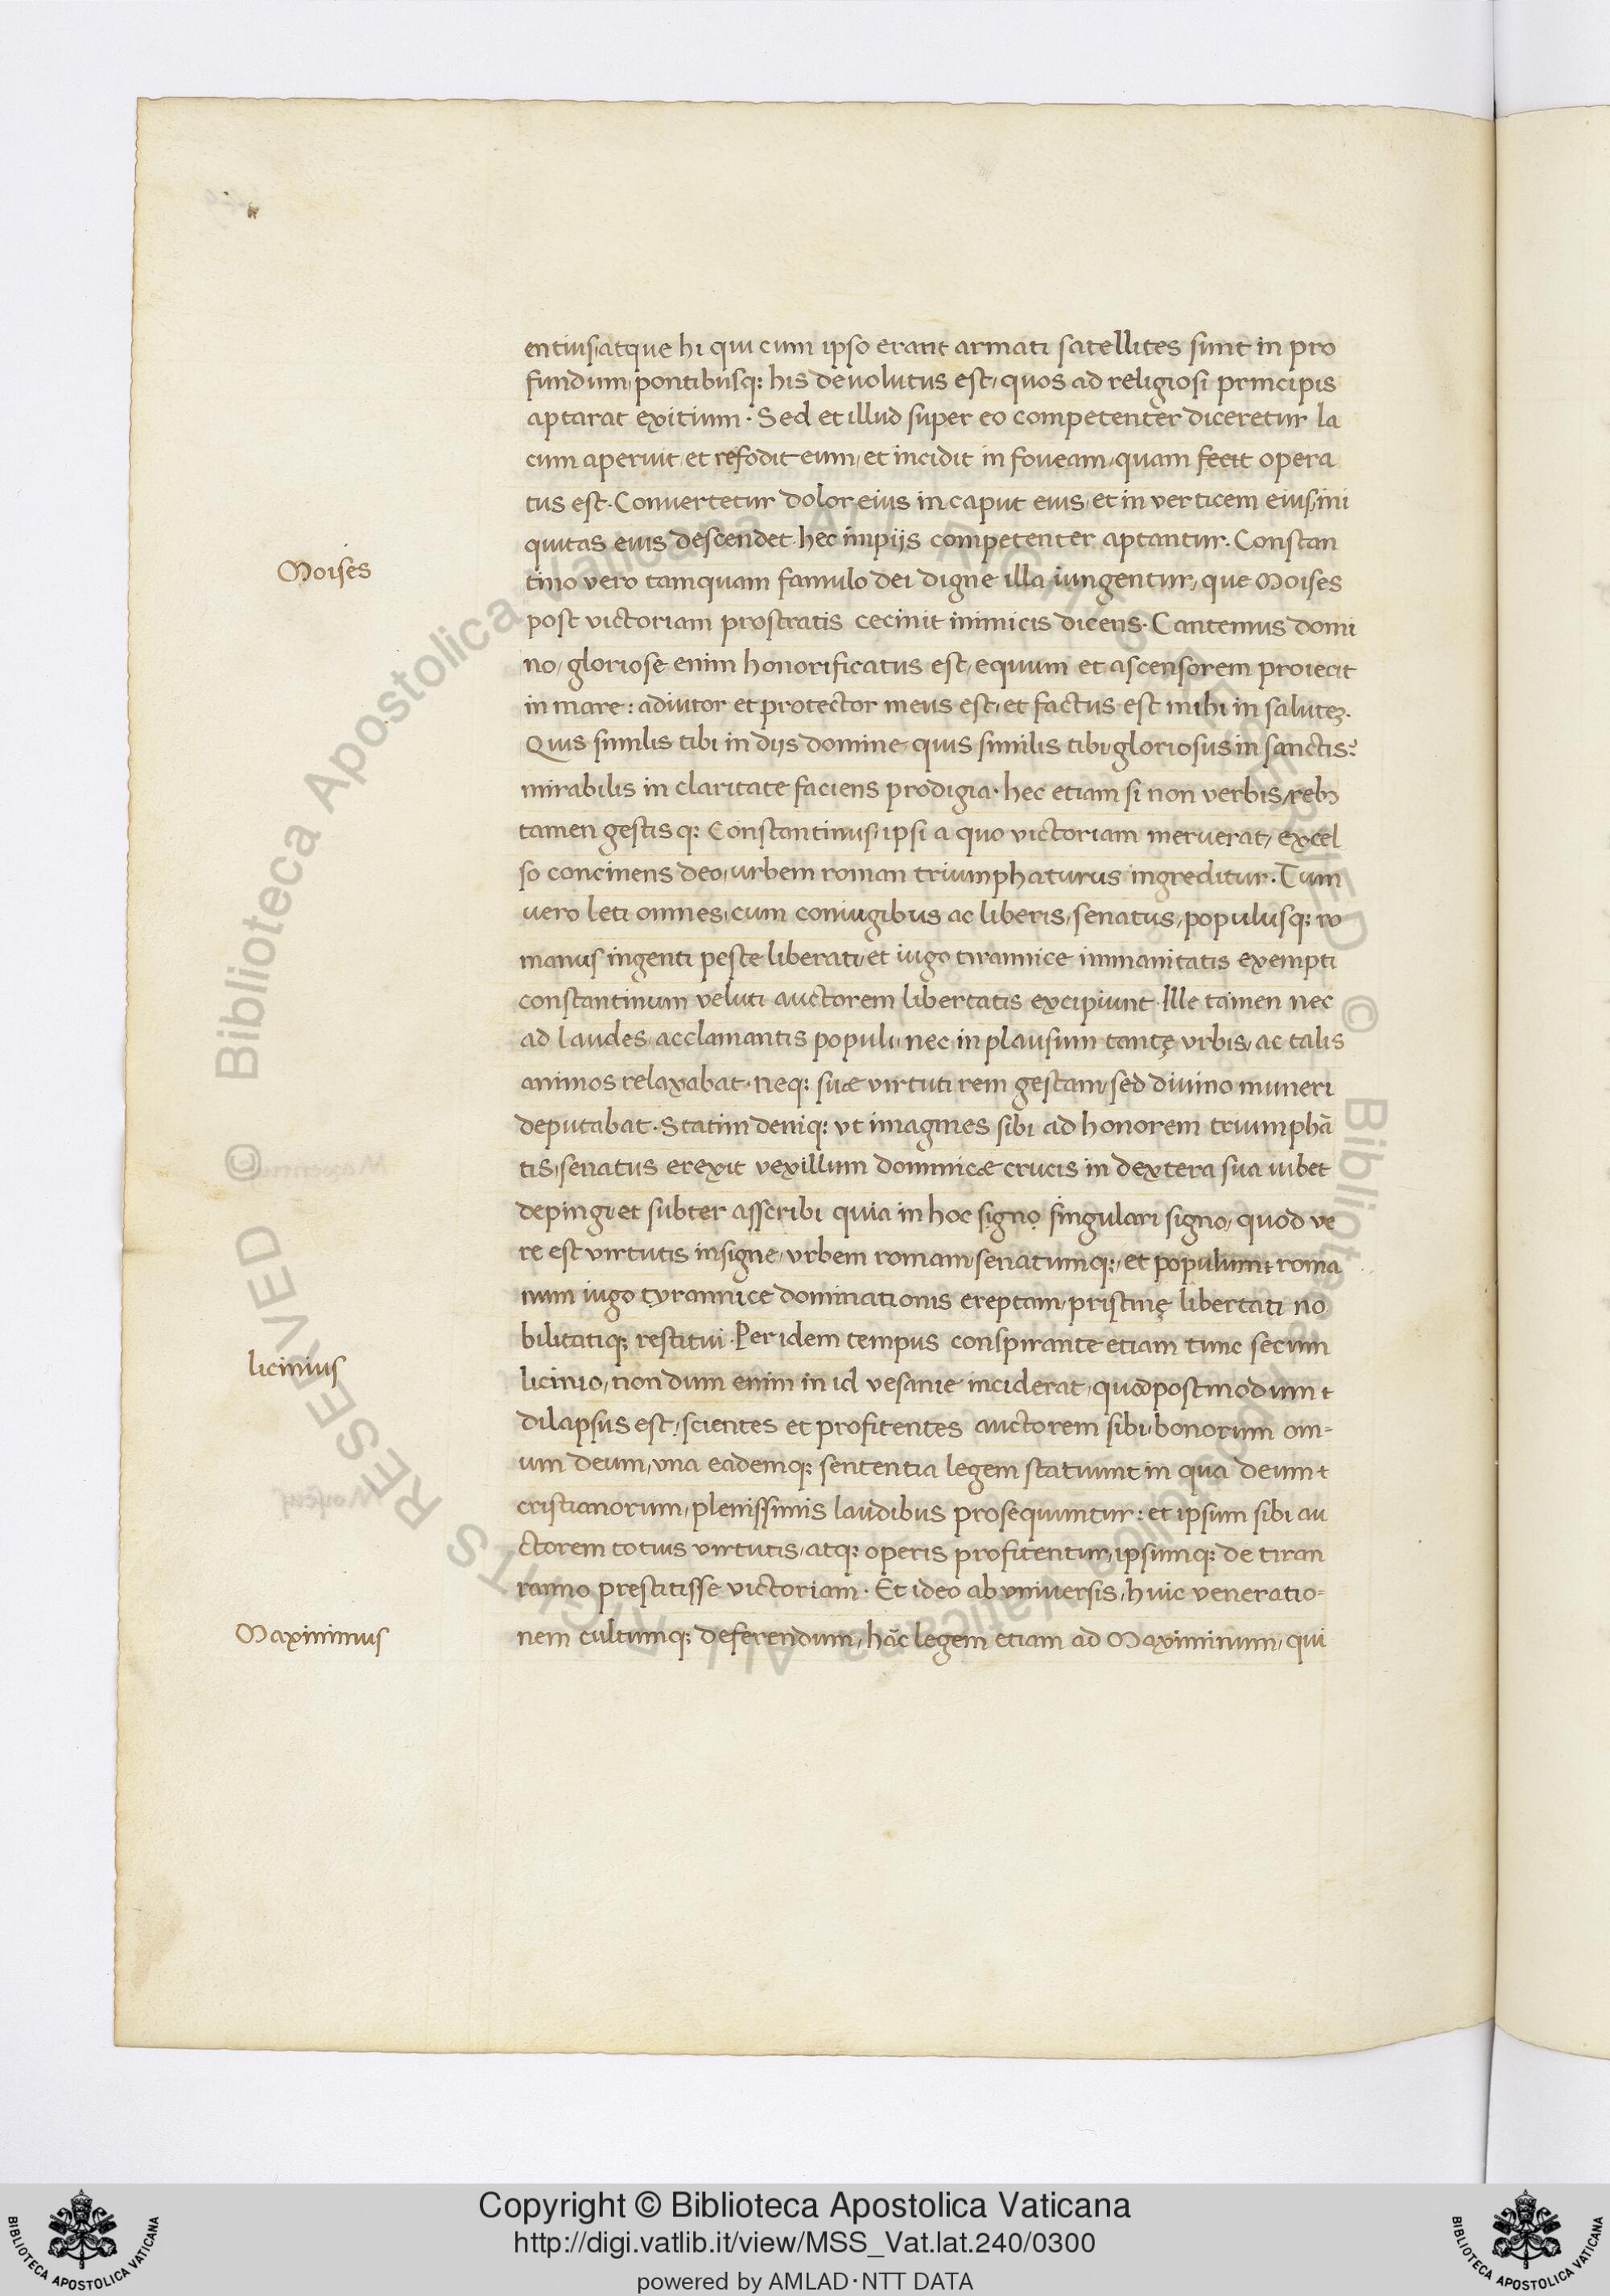 entius, atque hi qui cum ipso erant armati satellites sunt in pro
fundum, pontibusq; his devolutus est, quos ad religiosi principis
aptarat exitium. Sed et illud super eo competenter diceretur la
cum aperuit, et refodit eum, et incidit in foveam, quam fecit opera
tus est. Convertetur dolor eius in caput eius, et in verticem eius, ini
quitas eius descendet. hec impijs competenter aptantur. Constan
Moises
tino vero tamquam famulo dei digne illa iungentur, que Moises
post victoriam prostratis cecinit inimicis dicens. Cantemus domi
no, gloriose enim honorificatus est, equum et ascensorem proiecit
in mare: adiutor et protector meus est, et factus est mihi in salutez.
Quis similis tibi in dijs domine, quis similis tibi, gloriosus in sanctis?
mirabilis in claritate faciens prodigia. hec etiam si non verbis, reb3
tamen gestis q; Constantinus, ipsi a quo victoriam meruerat, excel
so concinens deo, urbem roman triumphaturus ingreditur. Tum
vero leti omnes, cum coniugibus ac liberis, senatus, populusq; ro
manus ingenti peste liberati, et iugo tirannice immanitatis exempti
constantinum veluti auctorem libertatis excipiunt. Ille tamen nec
ad laudes, acclamantis populi, nec in plausum tantę vrbis, ac talis
animos relaxabat. neq; suae virtuti rem gestam, sed divino muneri
deputabat. Statim deniq; vt imagines sibi ad honorem triumphā
tis, senatus erexit vexillum dominicae crucis in dextera sua iubet
depingi, et subter asscribi quia in hoc signo singulari signo, quod ve
re est virtutis insigne, vrbem romam, senatumq;, et populum roma
num iugo tyrannice dominationis ereptam, pristinę libertati no
bilitatiq; restitui. Per idem tempus conspirante etiam tunc secum
licinius
licinio, nondum enim in id vesanie inciderat, quo postmodum
dilapsus est, scientes et profitentes auctorem sibi, bonorum om-
um deum, vna eademq; sententia legem statuunt in qua deum
cristianorum, plenissimis laudibus prosequuntur: et ipsum sibi au
ctorem totius virtutis, atq; operis profitentur, ipsumq; de tiran
ranno prestitisse victoriam. Et ideo ab vniversis, huic veneratio-
Maximinus
nem cultumq; deferendum, hāc legem etiam ad Maximinum, qui
© Biblioteca Apostolica Vaticana ALL RIGHTS RESERVED
© Biblioteca Apostolica Vaticana ALL RIGHTS RESERVED
Copyright © Biblioteca Apostolica Vaticana
http://digi.vatlib.it/view/MSS_Vat.lat.240/0300
powered by AMLAD·NTT DATA
BIBLIOTECA APOSTOLICA VATICANA
BIBLIOTECA APOSTOLICA VATICANA